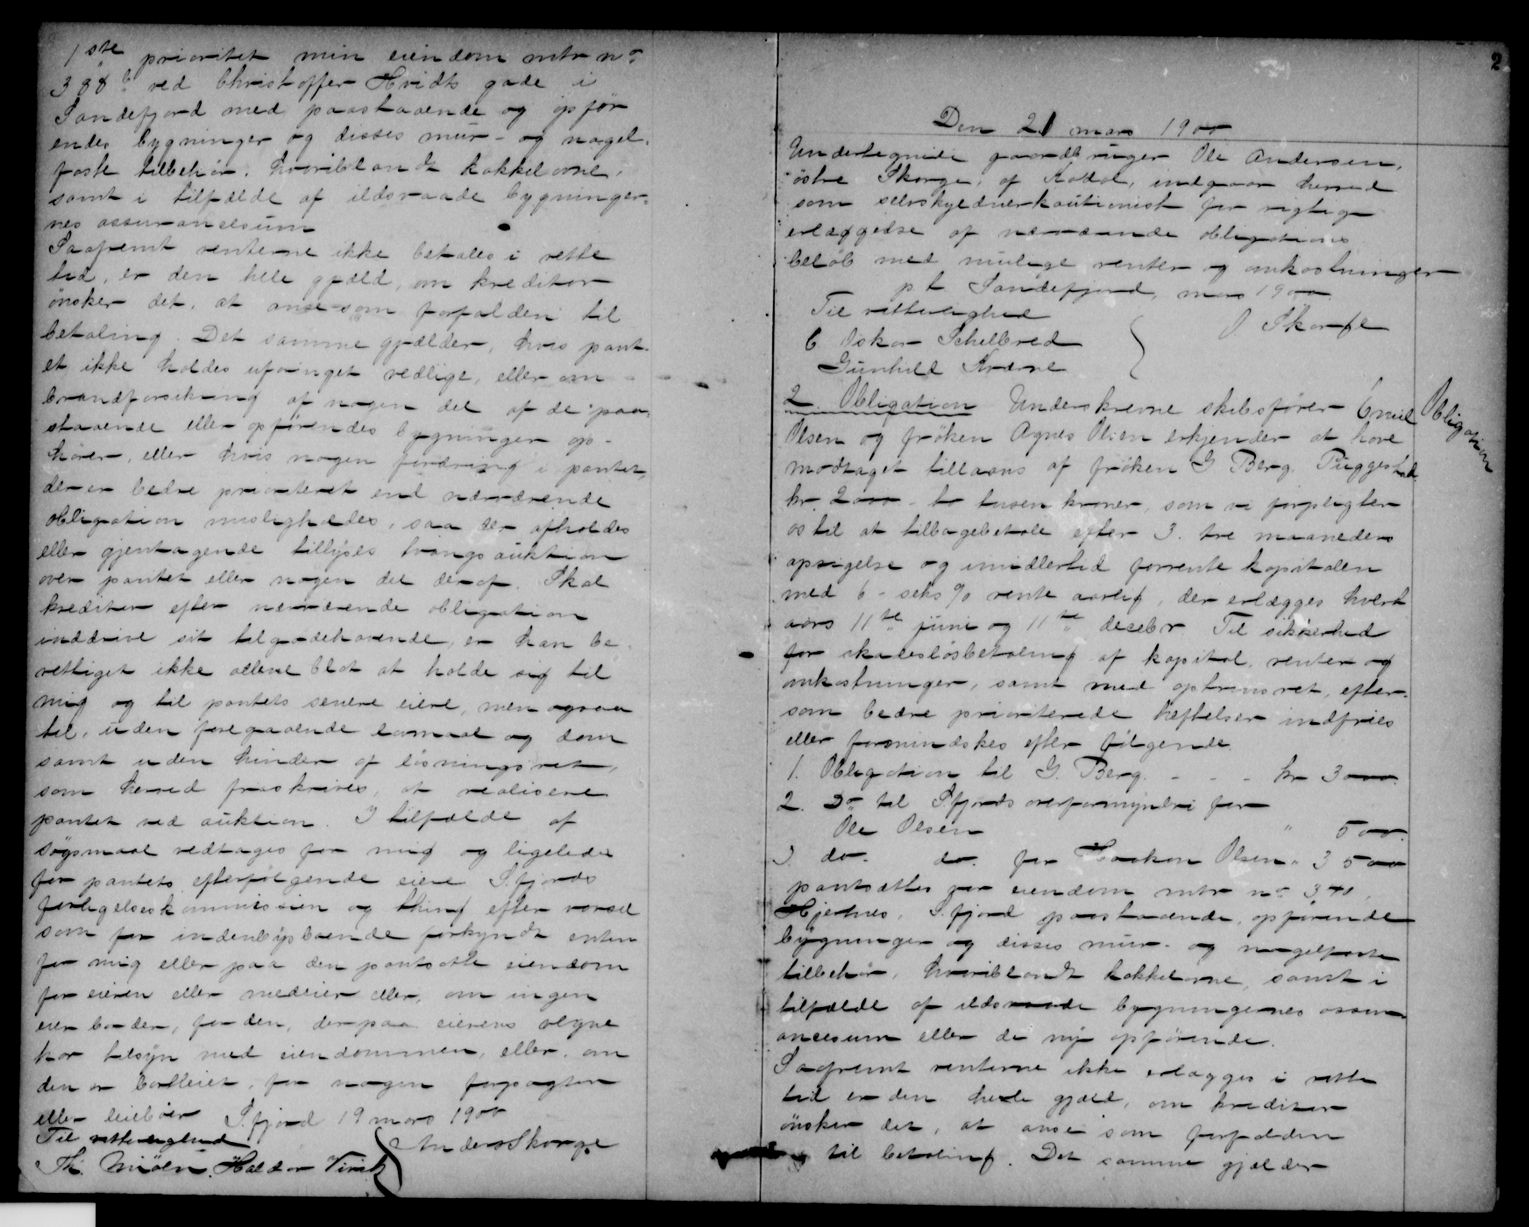 1ste prioritet min eiendom mtr no
388 b. ved Christoffer Hvidts gade i
Sandefjord med paastaaende og opför
endes bygninger og disses mur- og nagel-
faste tilbehör, hvoriblandt kakkelovne,
samt i tilfælde af ildsvaade bygninger-
nes assurancesum
Saafremt renterne ikke betales i rette
tid, er den hele gjæld, om kreditor
önsker det, at anse som forfalden til
betaling. Det samme gjælder, hvis pant-
et ikke holdes uforringet vedlige, eller om
brandforsikring af nogen del af de paa
staaende eller opförendes bygninger op-
hörer, eller hvis nogen fordring i pantet,
der er bedre prioriteret end nærværende
obligation misligholdes, saa der afholdes
eller gjentagende tillyses tvangsauktion
over pantet eller nogen del deraf. Skal
kreditor efter nærværende obligation
inddrive sit tilgodehavende, er han be-
rettiget ikke allene blot at holde sig til
mig og til pantets senere eiere, men ogsaa
til, uden foregaaende lovmaal og dom
samt uden hinder af lösningsret,
som herved fraskrives, at realisere
pantet ved auktion. I tilfælde af
sögsmaal vedtages for mig og ligeledes
for pantets efterfölgende eiere S.fjords
forligelseskommission og thing efter varsel
som for indenbysboende forkyndt enten
for mig eller paa den pantsatte eiendom
for eieren eller medeier eller, om ingen
eier bor der, for den, der paa eierens vegne
har tilsyn med eiendommen, eller, om
den er bortleiet, for nogen forpagter
eller leieboer S.fjord 19 mars 1900
Til vitterlighed Anders Skorge
Th. Halvdan
2
Den 21 mars 1900
Undertegnede gaardbruger Ole Andersen,
östre Skorge, af indgaar herved
som selvskyldnerkautionist for rigtig
erlæggelse af nærværende obligations
belöb med mulige renter og omkostninger
p t Sandefjord, mars 1900
Til vitterlighed O Skorge
C Oskar Schelbred
Gunhild
2. Obligation Underskrevne skibsförer Emil
Obligation
Olsen og fröken Agnes Olsen erkjender at have
modtaget tillaans af fröken G Berg, Puggestad
kr. 2000 - to tusen kroner, som vi forpligter
os til at tilbagebetale efter 3. tre maaneders
opsigelse og imidlertid forrente kapitalen
med 6 - seks % rente aarlig, der erlægges hvert
aars 11te juni og 11te decebr Til sikkerhed
for skadeslösbetaling af kapital, renter og
omkostninger, samt med optrinsret, efter-
som bedre prioriterede heftelser indfries
eller formindskes efter fölgende
1. Obligation til G. Berg. - - - kr 3000
2. Do til S.fjords overformynderi for
Ole Olsen " 500.
3. do. do. for Haakon Olsen " 3500
pantsættes vor eiendom mtr no 341,
Hjertnes, S.fjord paastaaende, opförende
bygninger og disses mur- og nagelfaste
tilbehör, hvoriblandt kakkelovne, samt i
tilfælde af ildsvaade bygningernes assur-
ancesum eller de ny opförende.
Saafremt renterne ikke erlægges i rette
tid er den hele gjæld, om kreditor
önsker det, at anse som forfalden
til betaling. Det samme gjælder